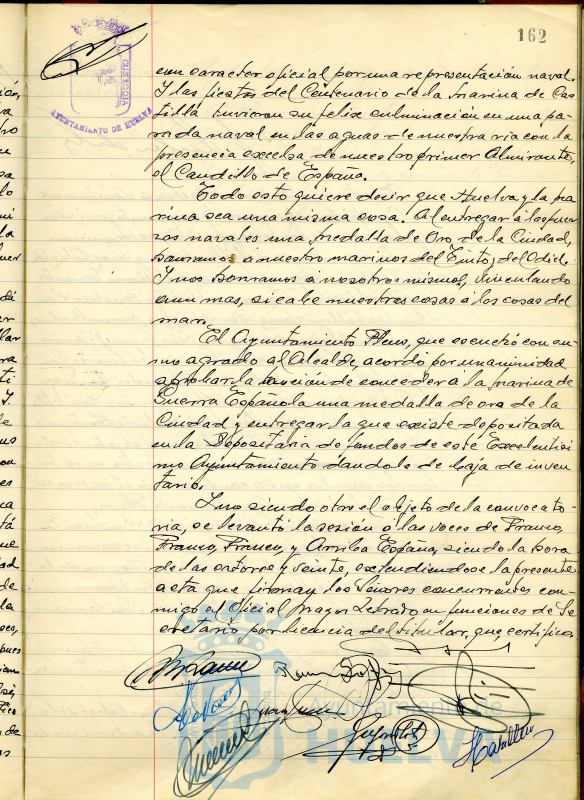 162
CUSTODIA
AYUNTAMIENTO DE HUELVA
con caracter oficial por una representación naval.
Y las fiestas del Centenario de la Marina de Cas
tilla tuvieron su feliz culminación en una pa-
rada naval en las aguas de nuestra ria con la
presencia excelsa de nuestro primer Almirante,
el Caudillo de España.
Todo esto quiere decir que Huelva y la ma
rina sea una misma cosa. Al entregar á las fuer
zas navales una Medalla de Oro de la Ciudad,
honramos á nuestro marinos del Tinto y del Odiel.
Y nos honramos á nosotros mismos, vinculando
aun mas, si cabe nuestras cosas á las cosas del
mar.
El Ayuntamiento Pleno, que escuchó con su-
mo agrado al Alcalde, acordó por unanimidad
aprobar la moción de conceder á la marina de
Guerra Española una medalla de oro de la
Ciudad y entregar la que existe depositada
en la Depositaria de fondos de este Excelentisi
mo Ayuntamiento dandola de baja de inven
tario.
Y no siendo otro el objeto de la convocato
ria, se levantó la sesión á las voces de Franco,
Franco, Franco, y Arriba España, siendo la hora
de las catorce y veinte, extendiendose la presente
acta que firman los Señores concurrentes con-
migo el Oficial Mayor Letrado en funciones de Se
cretario por licencia del titular, que certifico.
Ayuntamiento de
HUELVA